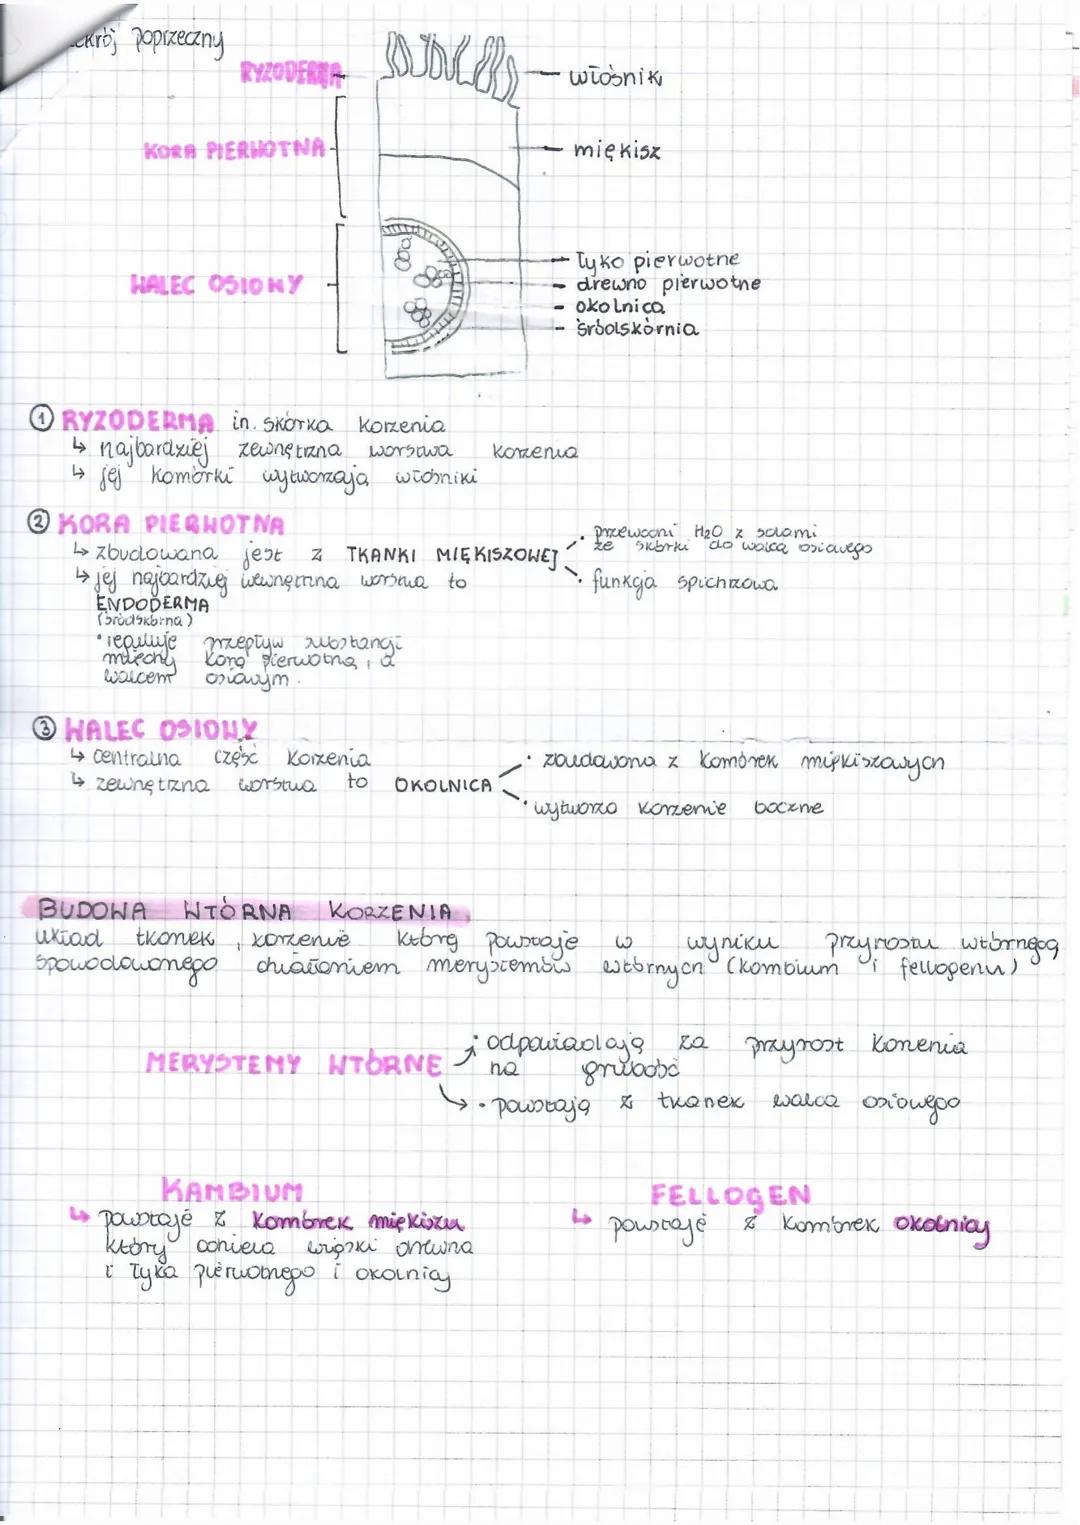 poprzeczny
RYZODERMA
włośnik
KORA PIERWOTNA
miękisz
łyko pierwotne
WALEC OSIOWY
drewno pierwotne
okolnica
śródskórnia
① RYZODERMA in. skórka korzenia
↳ najbardziej zewnętrzna warstwa korzenia
↳ jej komórki wytworzają włośniki
② KORA PIERWOTNA
• przewodni H₂O z solami
ze skórki do walca osiowego
↳ zbudowana jest z TKANKI MIĘKISZOWEJ
↳ jej najbardziej wewnętrzna warstwa to
• funkcja spichrzowa
ENDODERMA
(śródskórna)
• reguluje przepływ substancji
między korą pierwotną, a
walcem osiowym.
③ WALEC OSIOWY
↳ centralna część korzenia
• zbudowana z komórek miękiszowych
↳ zewnętrzna warstwa to OKOLNICA
• wytwarza korzenie boczne
BUDOWA WTÓRNA KORZENIA
układ tkanek, korzenie który powstaje w wyniku przyrostu wtórnego
spowodowanego działaniem merystemów wtórnych (kambium i fellogenu)
• odpowiadają za przyrost korzenia
MERYSTEMY WTÓRNE
na grubość
• powstają z tkanek walca osiowego
KAMBIUM
FELLOGEN
↳ powstaje z komórek miękiszu
↳ powstaje z komórek okolnicy
który oddziela wiązki drewna
i łyka pierwotnego i okolnicy